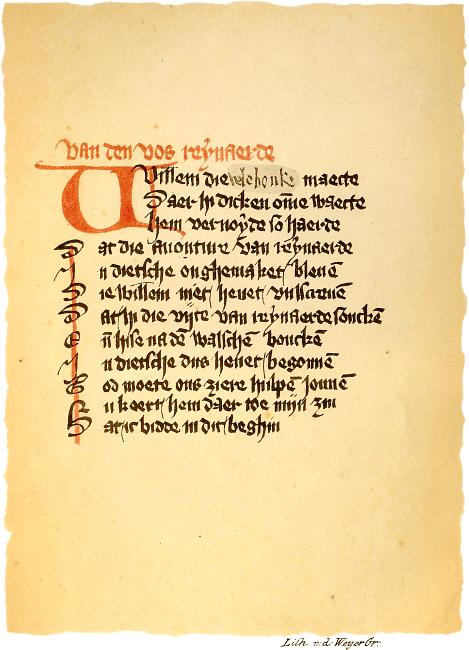 Van den vos reynaerde
Willem die vele bouke maecte
Daer hi dicken omē waecte
Hem vernoyde so haerde
Dat die auonture van reynaerde
In dietsche onghemaket bleuē
Die willem niet heuet vulscreuē
Dat hi die vijte van reynaerde souckē
Eñ hise na dē walschē bouckē
In dietsche dus heuet begonnē
God moete ons ziere hulpē jonnē
Nu keert hem daer toe mijn zin
Dat ic bidde in dit beghin
Lith v. d. Weyer Gr.